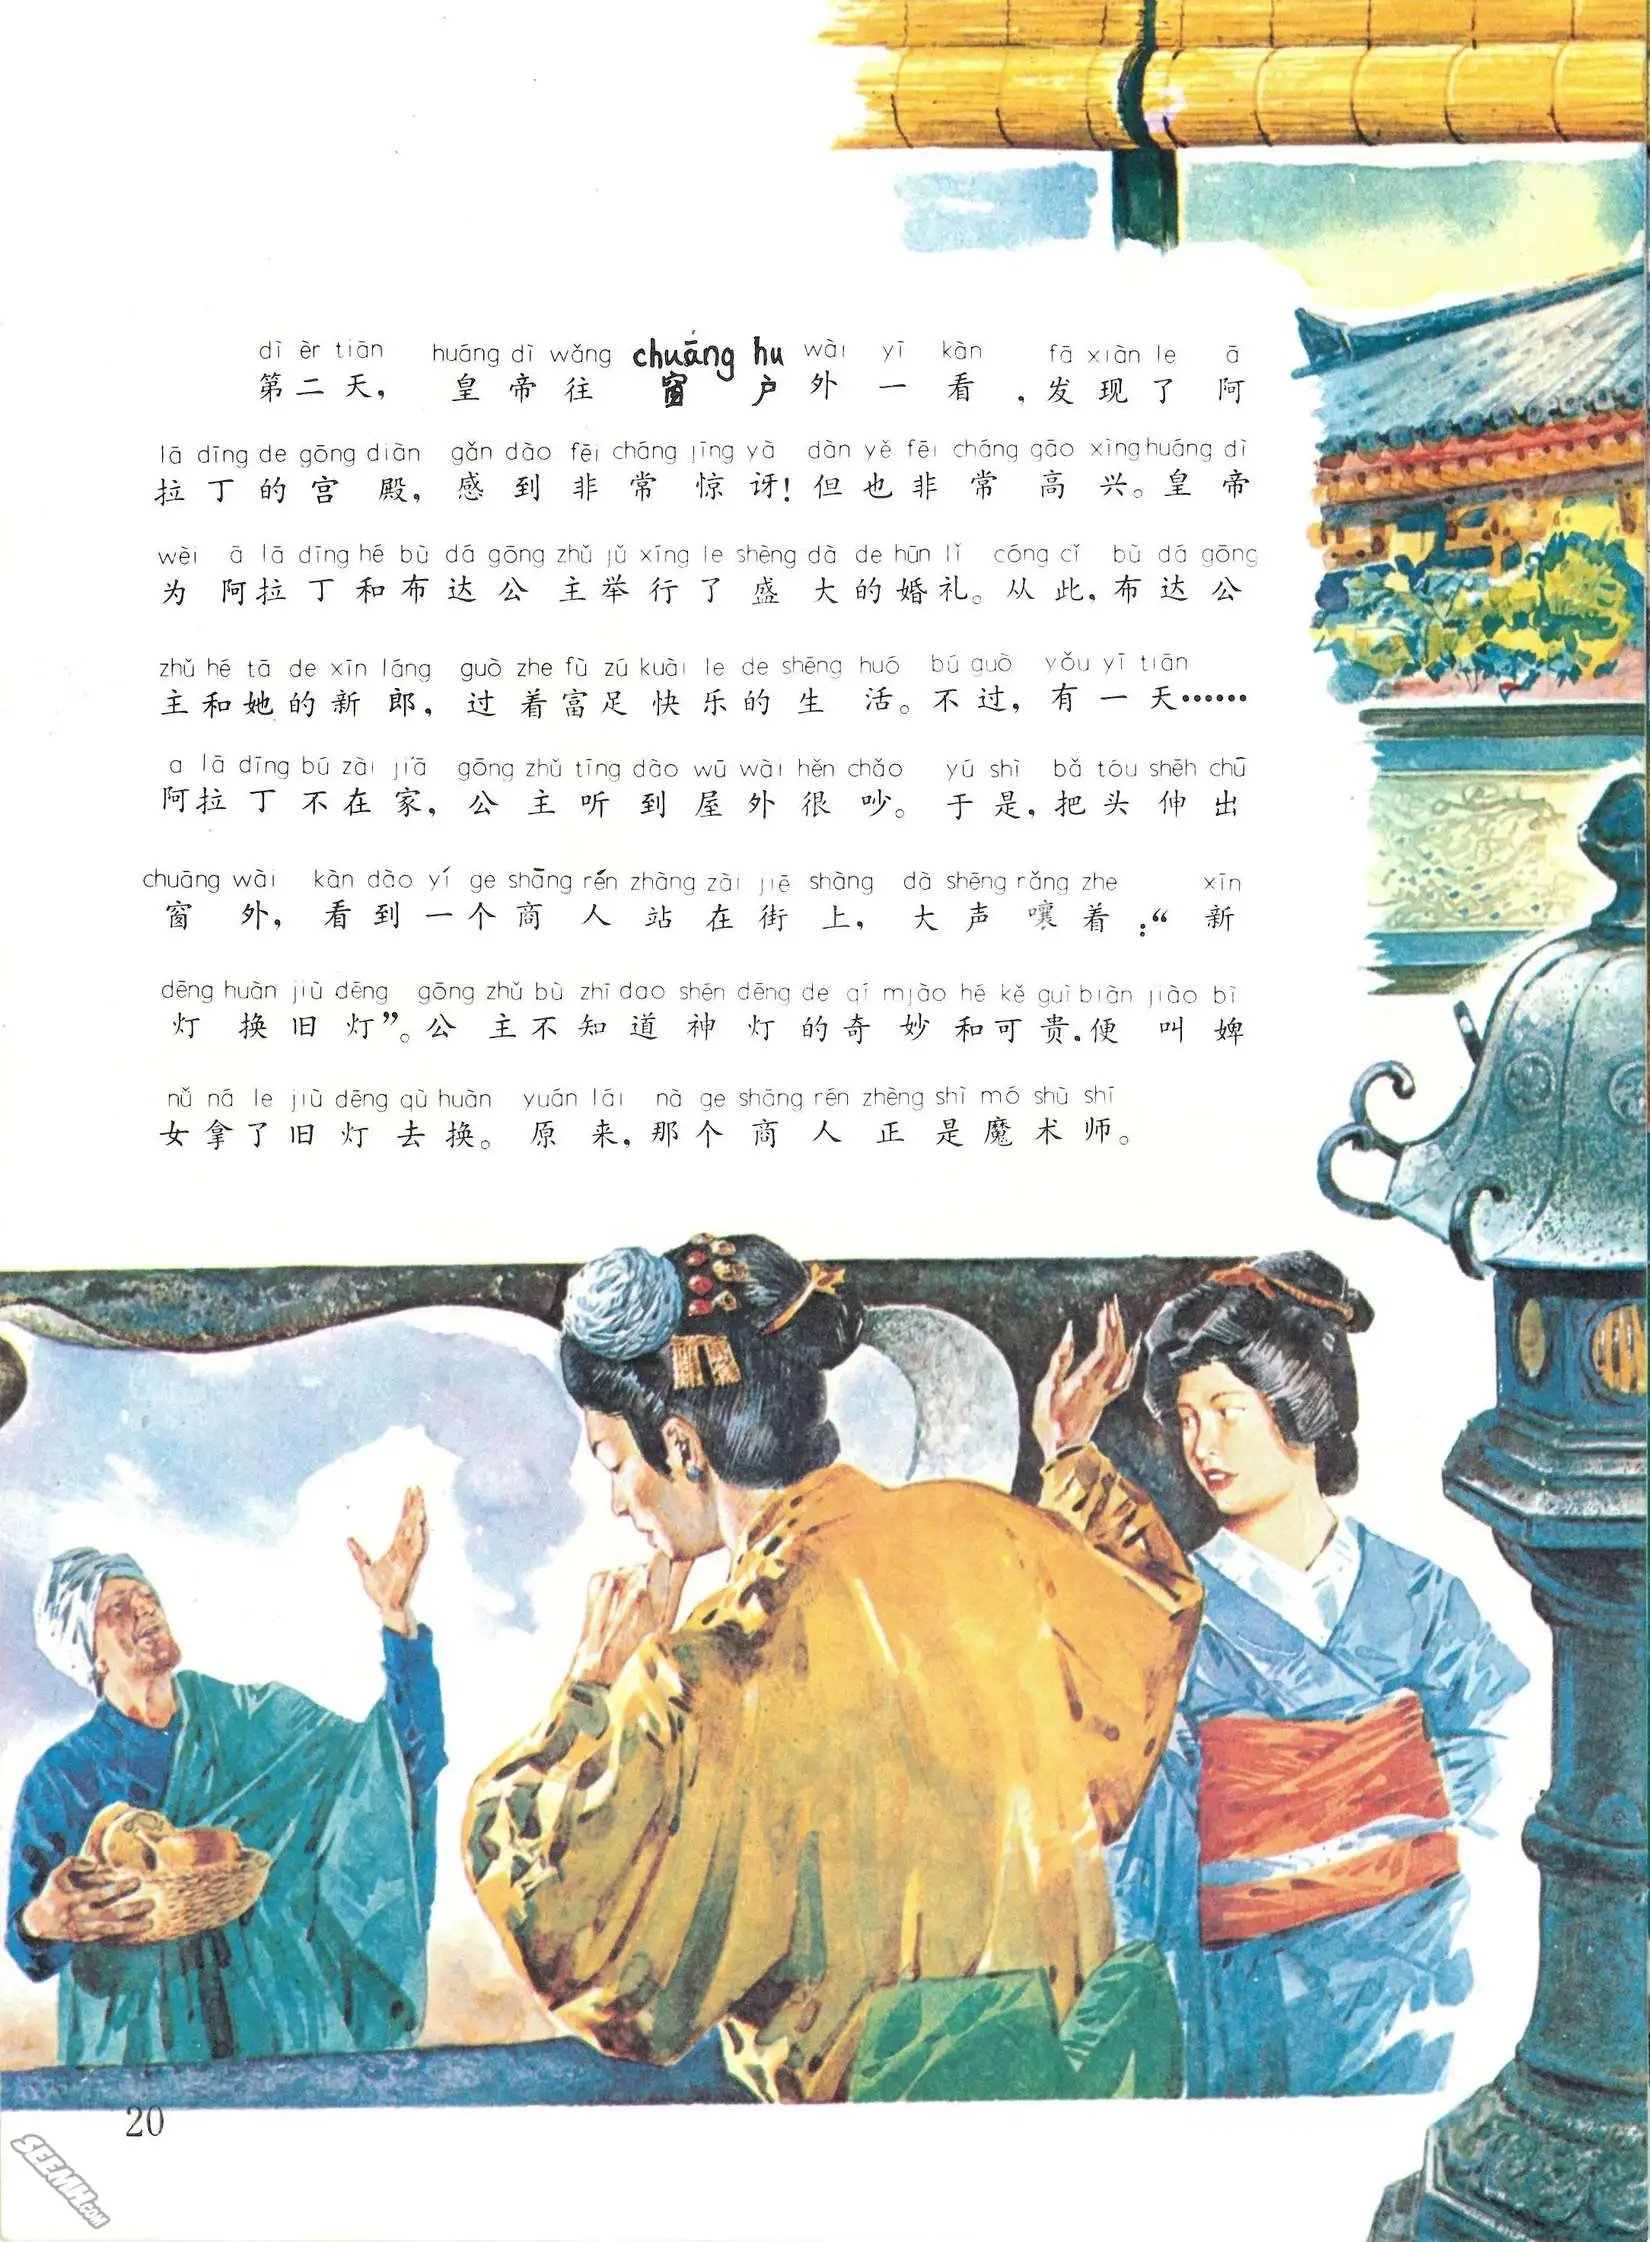 dì èr tiān huáng dì wǎng chuáng hu wài yī kàn fā xiàn le ā
第二天，皇帝往窗户外一看，发现了阿
lā dīng de gōng diàn gǎn dào fēi cháng jīng yà dàn yě fēi cháng gāo xìng huáng dì
拉丁的宫殿，感到非常惊讶！但也非常高兴。皇帝
wèi ā lā dīng hé bù dá gōng zhǔ jǔ xíng le shèng dà de hūn lǐ cóng cǐ bù dá gōng
为阿拉丁和布达公主举行了盛大的婚礼。从此，布达公
zhǔ hé tā de xīn láng guò zhe fù zú kuài le de shēng huó bú guò yǒu yī tiān
主和她的新郎，过着富足快乐的生活。不过，有一天……
a lā dīng bú zài jiā gōng zhǔ tīng dào wū wài hěn chǎo yú shì bǎ tóu shēn chū
阿拉丁不在家，公主听到屋外很吵。于是，把头伸出
chuāng wài kàn dào yí ge shāng rén zhàng zài jiē shàng dà shēng rǎng zhe xīn
窗外，看到一个商人站在街上，大声嚷着：“新
dēng huàn jiù dēng gōng zhǔ bù zhī dao shén dēng de qí miào hé kě guì biàn jiào bì
灯换旧灯”。公主不知道神灯的奇妙和可贵，便叫婢
nǚ ná le jiù dēng qù huàn yuán lái nà ge shāng rén zhèng shì mó shù shī
女拿了旧灯去换。原来，那个商人正是魔术师。
20
SEEMH.COM